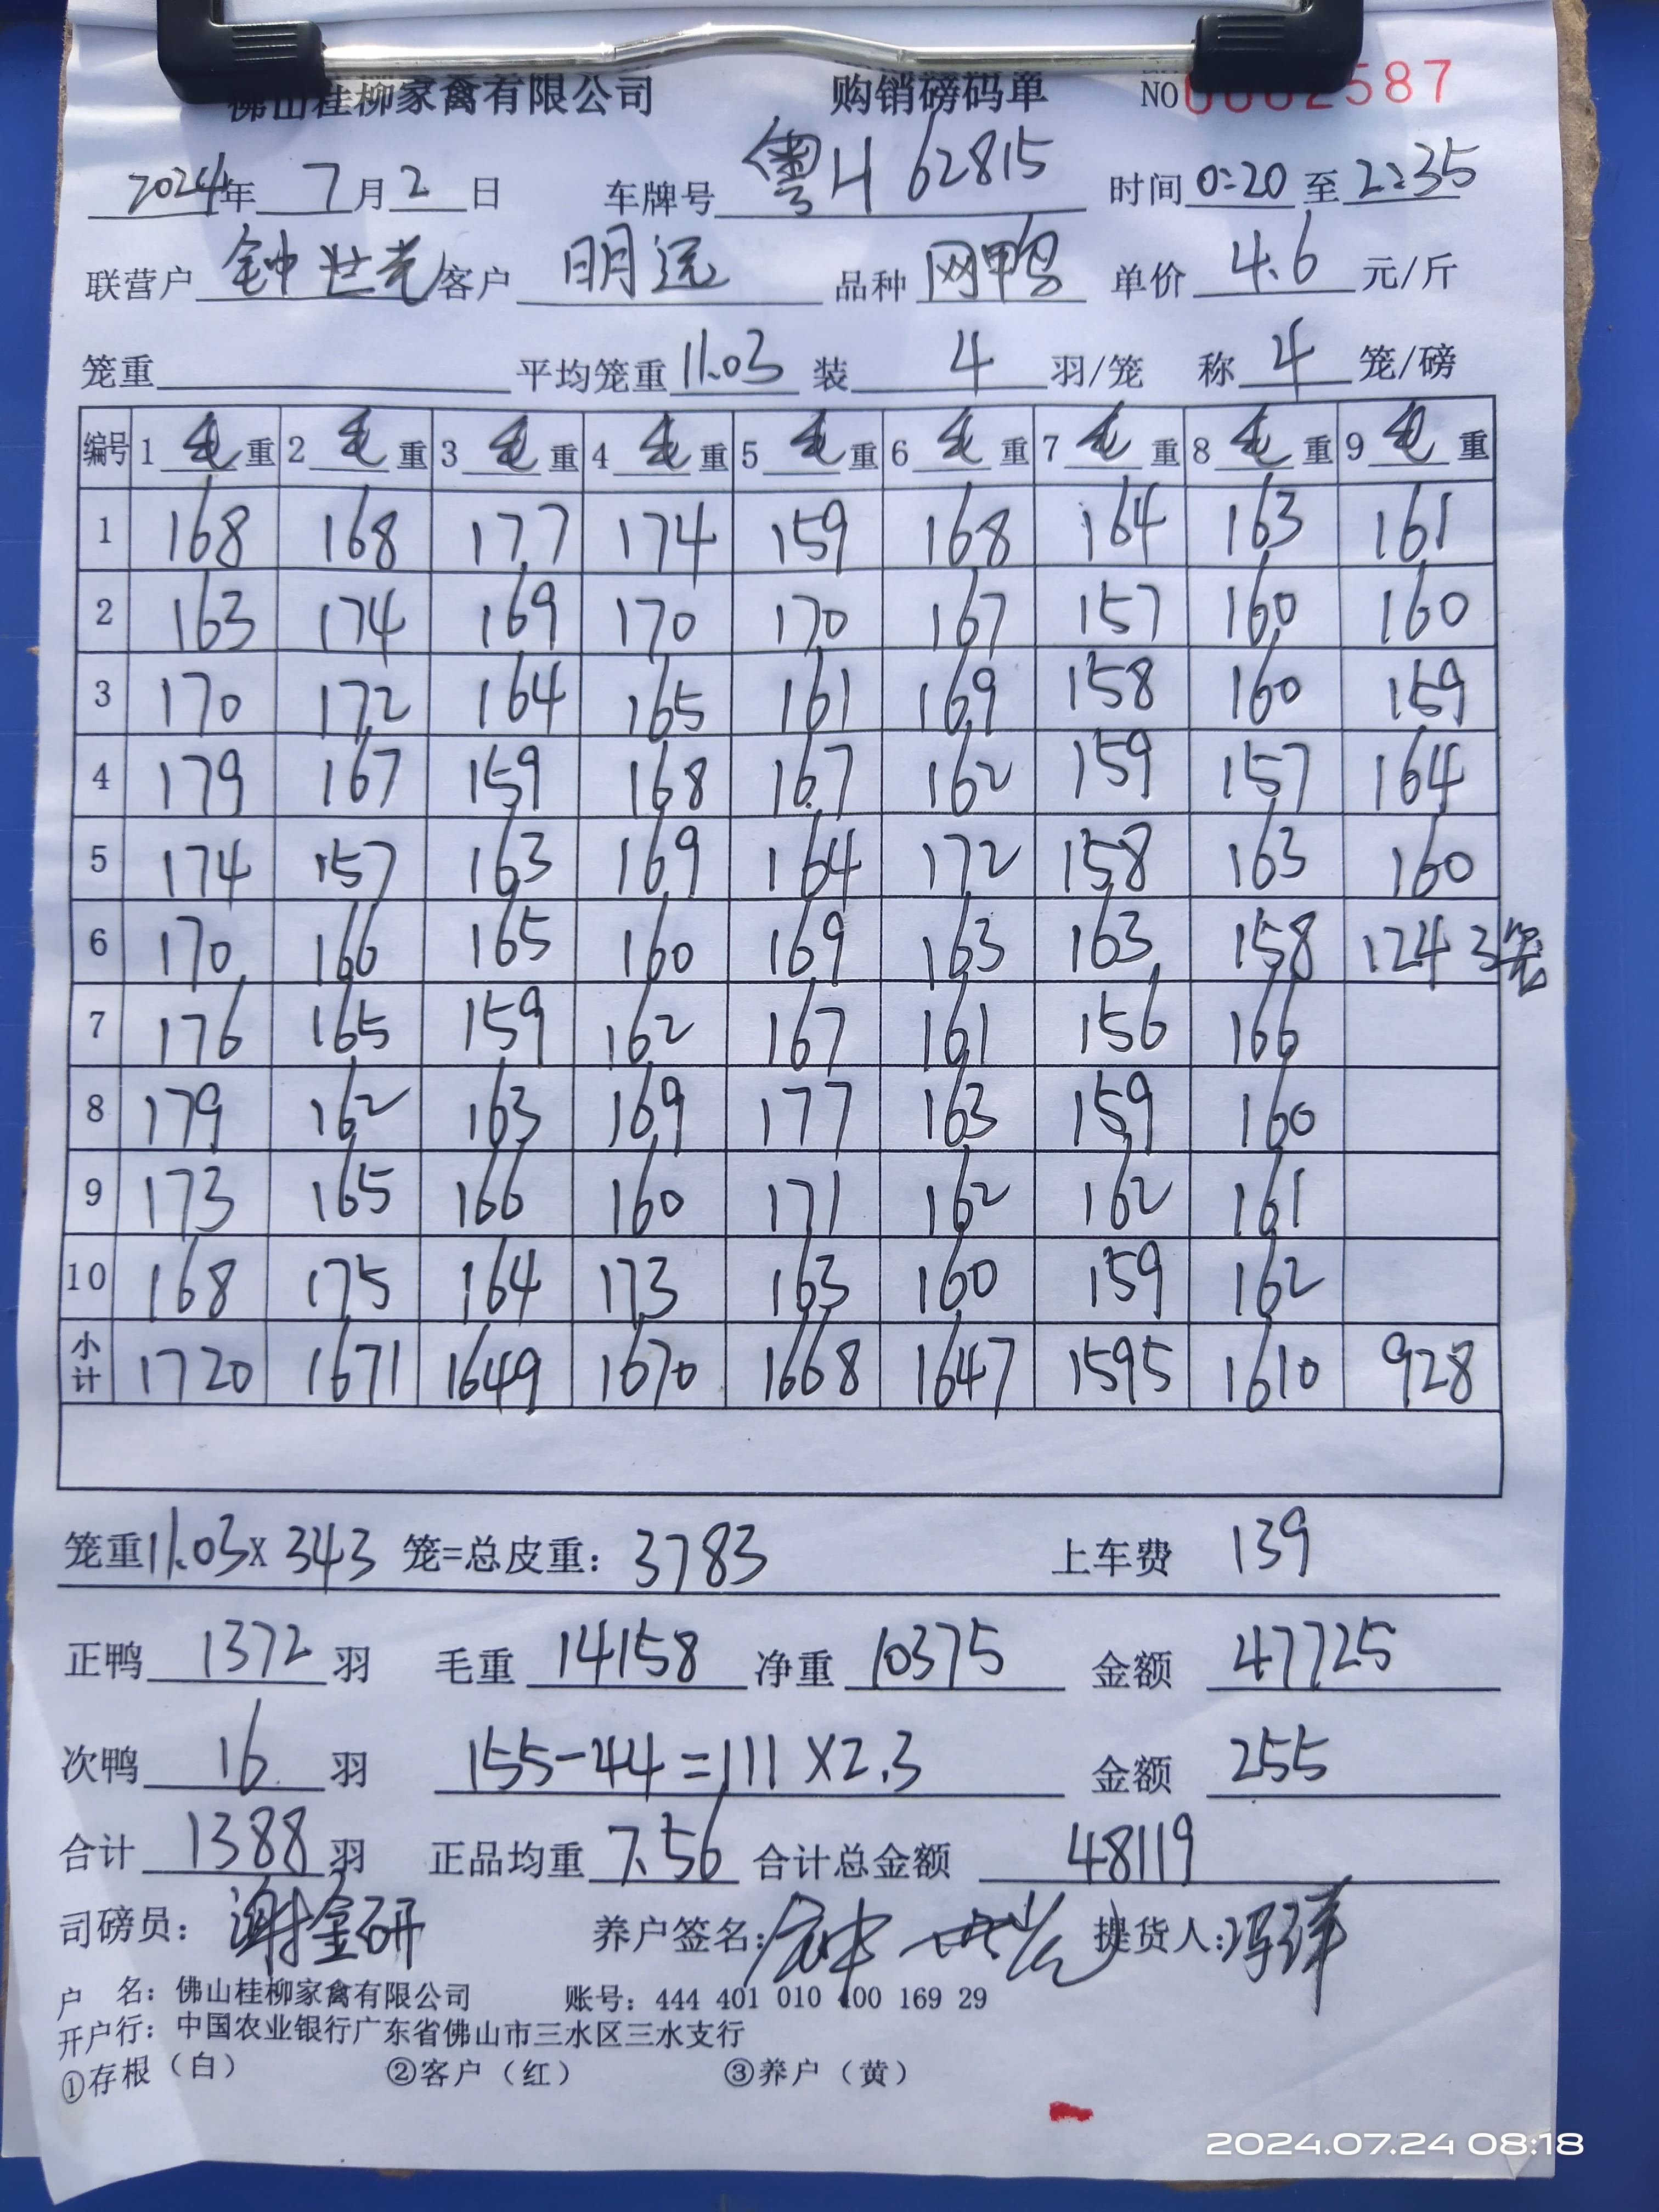 佛山桂柳家禽有限公司 购销磅码单 NO 587
2024年 7月2日 车牌号 粤H 62815 时间 0:20 至 2:35
联营户 钟世光 客户 明远 品种 网鸭 单价 4.6 元/斤
笼重 平均笼重 11.03 装 4 羽/笼 称 4 笼/磅
编号 1 毛 重 2 毛 重 3 毛 重 4 毛 重 5 毛 重 6 毛 重 7 毛 重 8 毛 重 9 毛 重
1 168 168 177 174 159 168 164 163 161
2 163 174 169 170 170 167 157 160 160
3 170 172 164 165 161 169 158 160 159
4 179 167 159 168 167 162 159 157 164
5 174 157 163 169 164 172 158 163 160
6 170 166 165 160 169 163 163 158 124 3笼
7 176 165 159 162 167 161 156 166
8 179 162 163 169 177 163 159 160
9 173 165 166 160 171 162 162 161
10 168 175 164 173 163 160 159 162
小计 1720 1671 1649 1670 1668 1647 1595 1610 928
笼重11.03X 343 笼=总皮重: 3783 上车费 139
正鸭 1372 羽 毛重 14158 净重 10375 金额 47725
次鸭 16 羽 155-44=111X2.3 金额 255
合计 1388 羽 正品均重 7.56 合计总金额 48119
司磅员: 谢金研 养户签名: 钟世光 提货人: 冯洋
户 名: 佛山桂柳家禽有限公司 账号: 444 401 010 400 169 29
开户行: 中国农业银行广东省佛山市三水区三水支行
①存根（白） ②客户（红） ③养户（黄）
2024.07.24 08:18